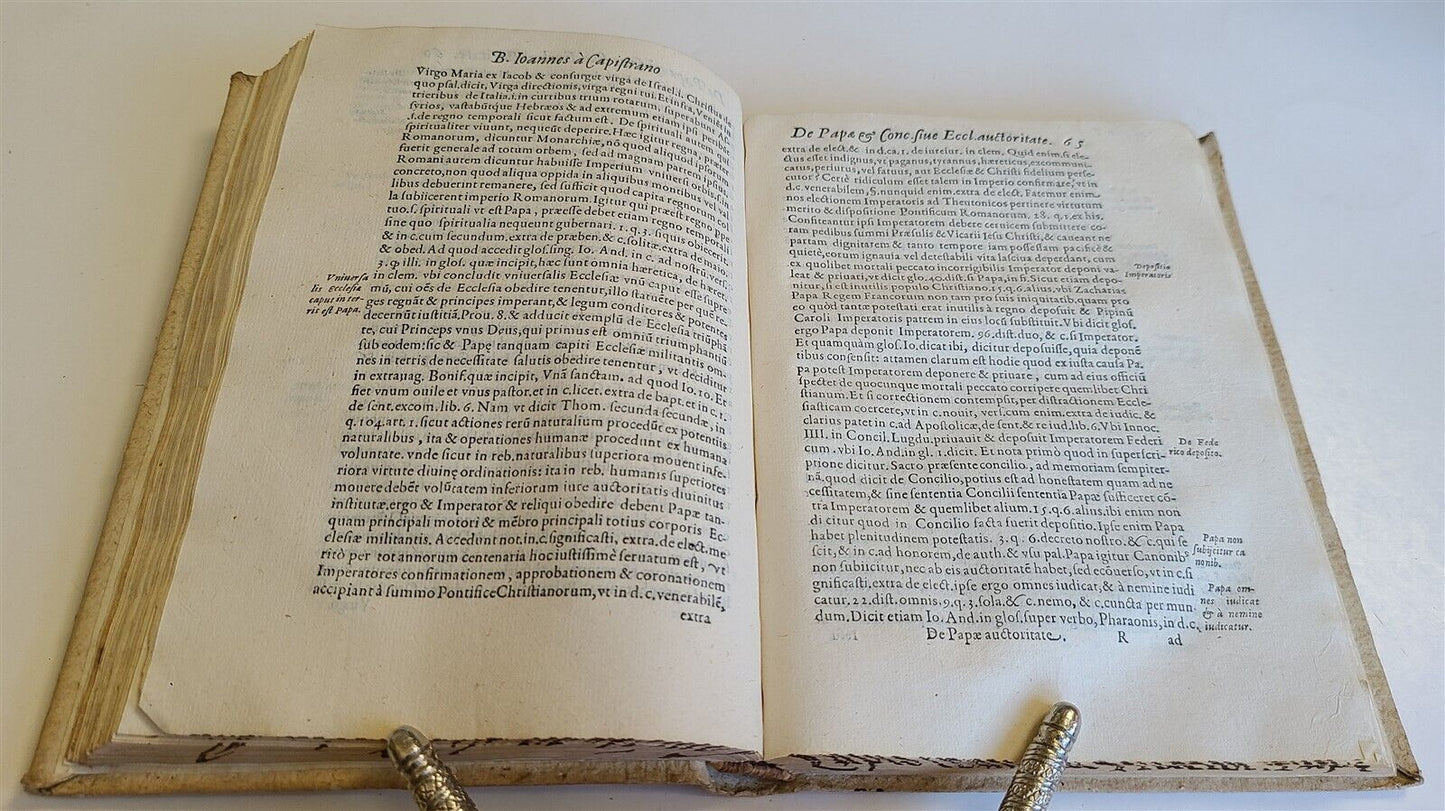 B. Ioannes à Capistrano
Virgo Maria ex Iacob & consurget virga de Israel.i. Christus de
quo psal.dicit, Virga directionis, virga regni tui. Et infra, Veniēt in
trieribus de Italia.i. in curribus trium rotarum, superabunt As
syrios, vastabūtque Hebræos & ad extremum etiam ipsi peribūt
.s. de regno temporali sicut factum est. De spirituali autem qui
spiritualiter viuunt, nequeūt deperire. Hæc igitur regna, præter
Romanorum, dicuntur Monarchiæ, nō quod aliquod ipsorum
fuerit generale ad totum orbem, sed ad magnam partem ipsius.
Romani autem dicuntur habuisse Imperium vniuersi orbis, in
concreto, non quod aliqua oppida in aliquibus montibus vel val
libus debuerint remanere, sed sufficit quod capita regnorum col
la subiicerent imperio Romanorum. Igitur qui præest regno ppe
tuo.s. spirituali vt est Papa, præesse debet etiam regno temporali
sine quo spiritualia nequeunt gubernari. 1. q. 3. siquis obiecerit
& in c. cum secundum. extra de præben. & c. solitæ. extra de maio.
& obed. Ad quod accedit glos. sing. Io. And. in c. ad nostrū, vers.
3. q. illi. in glos. quæ incipit, hæc sunt omnia hæretica, de hæret.
in clem. vbi concludit vniuersalis Ecclesiæ vnū caput esse supre
mū, cui oēs de Ecclesia obedire tenentur, illo statuēte per quē re-
ges regnāt & principes imperant, & legum conditores & potentes
decernūt iustitiā, Prou. 8. & adducit exemplū de Ecclesia triūphā
te, cui Princeps vnus Deus, qui primus est omniū triumphantiū
sub eodem: sic & Papę tanquam capiti Ecclesiæ militantis om-
nes in terris de necessitate salutis obedire tenentur, vt deciditur
in extrauag. Bonif. quæ incipit, Vnā sanctam. ad quod Io. 10. Et
fiet vnum ouile et vnus pastor. et in c. licet. extra de bapt. et in c. 1.
de sent. excom. lib. 6. Nam vt dicit Thom. secunda secundæ, in
q. 104. art. 1. sicut actiones rerū naturalium procedūt ex potentiis
naturalibus, ita & operationes humanæ procedunt ex humana
voluntate. vnde sicut in reb. naturalibus superiora mouent infe-
riora virtute diuinę ordinationis: ita in reb. humanis superiores
mouere debēt volūtatem inferiorum iure auctoritatis diuinitus
institutæ. ergo & Imperator & reliqui obedire debent Papæ tan-
quam principali motori & mēbro principali totius corporis Ec-
clesiæ militantis. Accedunt not. in. c. significasti, extra. de elect. me
ritò per tot annorum centenaria hoc iustissimè seruatum est, vt
Imperatores confirmationem, approbationem & coronationem
accipiant à summo Pontifice Christianorum, vt in d. c. venerabilē,
extra
Vniuersa
lis Ecclesia
caput in ter-
ris est Papa.
De Papæ & Conc. siue Eccl. auctoritate. 65
extra de elect. & in d. ca. 1. de iureiur. in clem. Quid enim. si ele-
ctus esset indignus, vt paganus, tyrannus, hæreticus, excommuni-
catus, periurus, vel fatuus, aut Ecclesiæ & Christi fidelium perse-
cutor? Certè ridiculum esset talem in Imperio confirmare, vt in
d. c. venerabilem, §. nunquid enim. extra de elect. Fatemur enim
nos electionem Imperatoris ad Theutonicos pertinere virtutum
merito & dispositione Pontificum Romanorum. 28. q. 1. ex his.
Confiteantur ipsi Imperatorem debere ceruicem submittere co-
ram pedibus summi Præsulis & Vicarii Iesu Christi, & caueant ne
partam dignitatem & tanto tempore iam possessam pacificè &
quietè, eorum ignauia vel detestabili vita lasciua deperdant, cum
ex quolibet mortali peccato incorrigibilis Imperator deponi va-
leat & priuari, vt dicit glo. 40. dist. si Papa, in fi. Sicut etiam depo-
nitur, si est inutilis populo Christiano. 15. q. 6. alius. vbi Zacharias
Papa Regem Francorum non tam pro suis iniquitatib. quam pro
eo quòd tantæ potestati erat inutilis à regno deposuit & Pipinū
Caroli Imperatoris patrem in eius locū substituit. Vbi dicit glos.
ergo Papa deponit Imperatorem. 96. dist. duo, & c. si Imperator.
Et quamquàm glos. Io. dicat ibi, dicitur deposuisse, quia deponē
tibus consensit: attamen clarum est hodie quod ex iusta causa Pa.
pa potest Imperatorem deponere & priuare, cum ad eius officiū
spectet de quocunque mortali peccato corripere quemlibet Chri
stianum. Et si correctionem contempsit, per distractionem Eccle-
siasticam coercere, vt in c. nouit, vers. cum enim. extra de iudic. &
clarius patet in c. ad Apostolicæ, de sent. & re iud. lib. 6. Vbi Innoc.
IIII. in Concil. Lugdu. priuauit & deposuit Imperatorem Federi
cum. vbi Io. And. in gl. 1. dicit. Et nota primò quod in superscri-
ptione dicitur. Sacro præsente concilio, ad memoriam sempiter-
nā. quod dicit de Concilio, potius est ad honestatem quam ad ne
cessitatem, & sine sententia Concilii sententia Papæ sufficeret cō-
tra Imperatorem & quemlibet alium. 15. q. 6. alius. ibi enim non
di citur quod in Concilio facta fuerit depositio. Ipse enim Papa
habet plenitudinem potestatis. 3. q. 6. decreto nostro. & c. qui se
scit, & in c. ad honorem, de auth. & vsu pal. Papa igitur Canonib.
non subiicitur, nec ab eis auctoritatē habet, sed ecōuerso, vt in c. si
gnificasti, extra de elect. ipse ergo omnes iudicat, & à nemine iudi
catur. 22. dist. omnis. 9. q. 3. sola. & c. nemo, & c. cuncta per mun
dum. Dicit etiam Io. And. in glos. super verbo, Pharaonis, in d. c.
De Papæ auctoritate. R ad
Depositio
Imperatoris
De Fede
rico deposito.
Papa non
subijcitur ca
nonib.
Papa om-
nes iudicat
& à nemine
iudicatur.